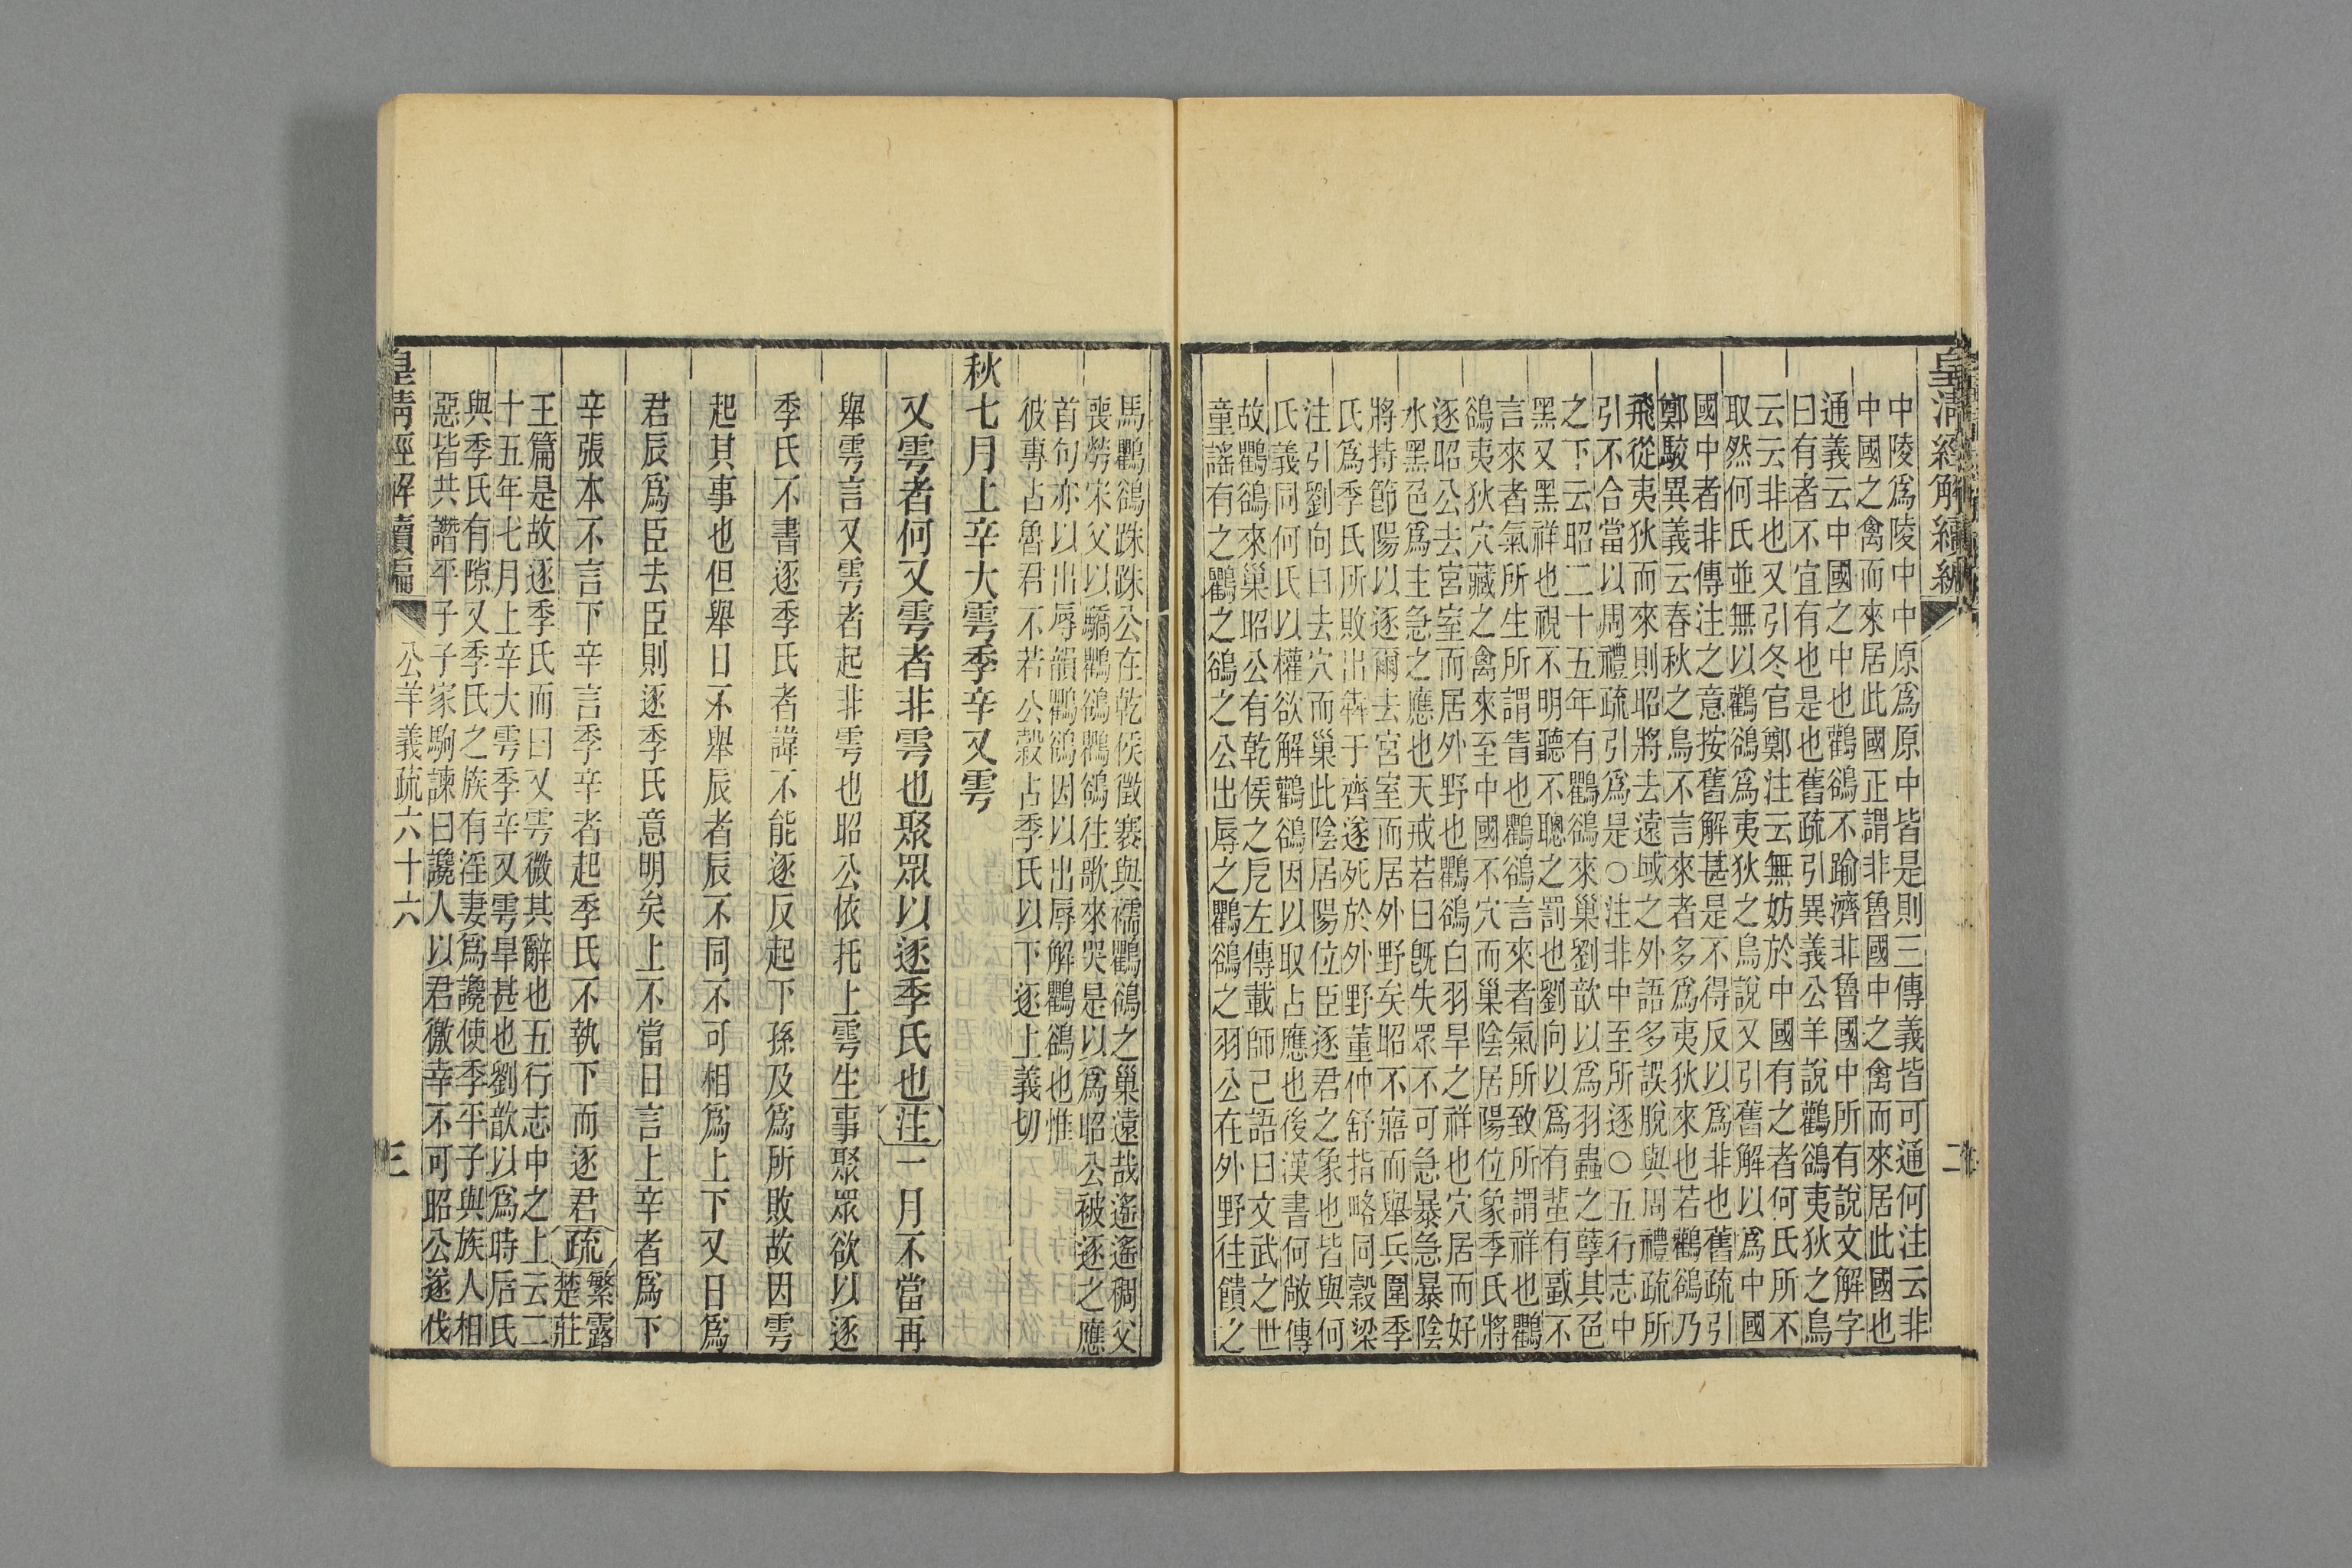 皇清經解續編
二
中陵爲陵中中原爲原中皆是則三傳義皆可通何注云非
中國之禽而來居此國正謂非魯國中之禽而來居此國也
通義云中國之中也鸛鵒不踰濟非魯國中所有說文解字
曰有者不宜有也是也舊疏引異義公羊說鸛鵒夷狄之鳥
云云非也又引冬官鄭注云無妨於中國有之者何氏所不
取然何氏並無以鸛鵒爲夷狄之鳥說又引舊解以爲中國
國中者非傳注之意按舊解甚是不得反以爲非也舊疏引
鄭駮異義云春秋之鳥不言來者多爲夷狄來也若鸛鵒乃
飛從夷狄而來則昭將去遠域之外語多誤脫與周禮疏所
引不合當以周禮疏引爲是○注非中至所逐○五行志中
之下云昭二十五年有鸛鵒來巢劉歆以爲羽蟲之孽其色
黑又黑祥也視不明聽不聰之罰也劉向以爲有蜚有蜮不
言來者氣所生所謂眚也鸛鵒言來者氣所致所謂祥也鸛
鵒夷狄穴藏之禽來至中國不穴而巢陰居陽位象季氏將
逐昭公去宮室而居外野也鸛鵒白羽旱之祥也穴居而好
水黑色爲主急之應也天戒若曰旣失眾不可急暴急暴陰
將持節陽以逐爾去宮室而居外野矣昭不寤而舉兵圍季
氏爲季氏所敗出犇于齊遂死於外野董仲舒指略同穀梁
注引劉向曰去穴而巢此陰居陽位臣逐君之象也皆與何
氏義同何氏以權欲解鸛鵒因以取占應也後漢書何敞傳
故鸛鵒來巢昭公有乾侯之戹左傳載師己語曰文武之世
童謠有之鸛之鵒之公出辱之鸛鵒之羽公在外野往饋之
馬鸛鵒跦跦公在乾侯徵褰與襦鸛鵒之巢遠哉遙遙稠父
喪勞宋父以驕鸛鵒鸛鵒往歌來哭是以爲昭公被逐之應
首句亦以出辱韻鸛鵒因以出辱解鸛鵒也惟
彼專占魯君不若公穀占季氏以下逐上義切
秋七月上辛大雩季辛又雩
又雩者何又雩者非雩也聚眾以逐季氏也注一月不當再
舉雩言又雩者起非雩也昭公依托上雩生事聚眾欲以逐
季氏不書逐季氏者諱不能逐反起下孫及爲所敗故因雩
起其事也但舉日不舉辰者辰不同不可相爲上下又日爲
君辰爲臣去臣則逐季氏意明矣上不當日言上辛者爲下
辛張本不言下辛言季辛者起季氏不執下而逐君疏繁露
楚莊
王篇是故逐季氏而曰又雩微其辭也五行志中之上云二
十五年七月上辛大雩季辛又雩旱甚也劉歆以爲時后氏
與季氏有隙又季氏之族有淫妻爲讒使季平子與族人相
惡皆共譖平子子家駒諫曰讒人以君徼幸不可昭公遂伐
皇清經解續編
公羊義疏六十六
三